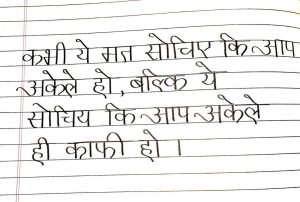 कभी ये मत सोचिए कि आप
अकेले हो, बल्कि ये
सोचिय कि आप अकेले
ही काफी हो ।